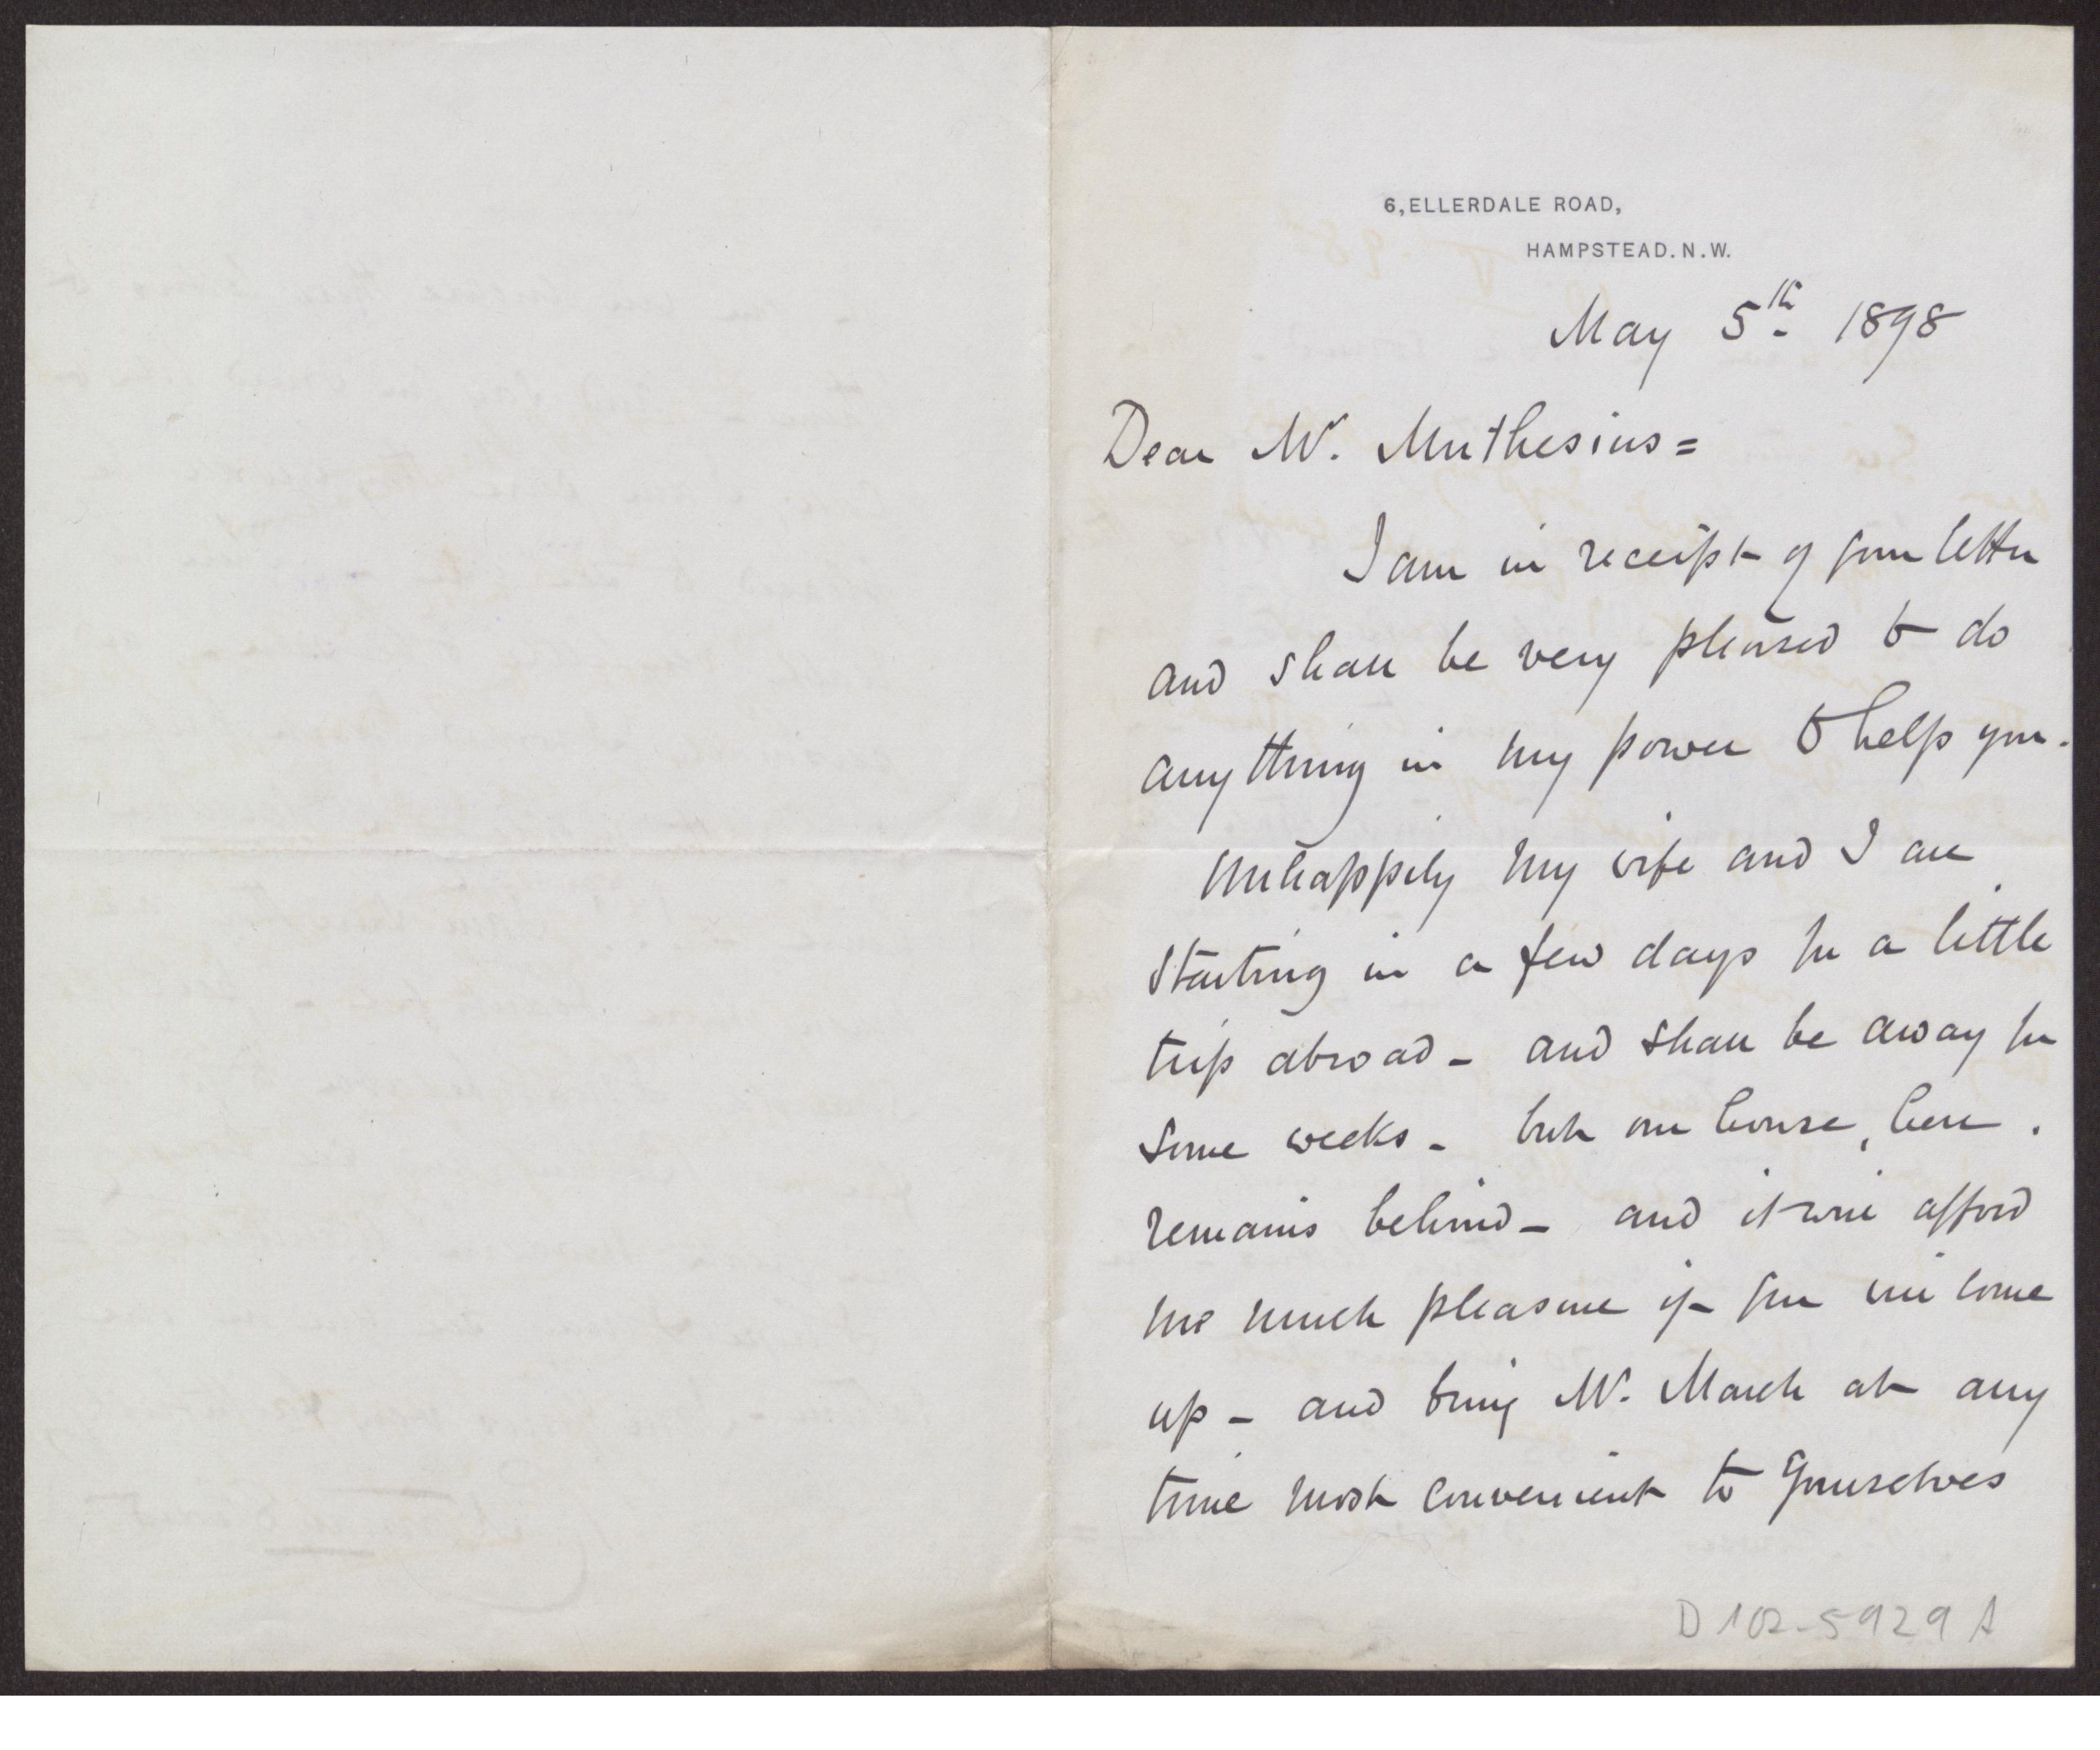 6, ELLERDALE ROAD,
HAMPSTEAD. N. W.
May 5th 1898
Dear Mr. Muthesius =
I am in receipt of your letter
and shall be very pleased to do
anything in my power to help you.
Unhappily my wife and I are
starting in a few days for a little
trip abroad - and shall be away for
some weeks - but our house, here.
remains behind - and it will afford
me much pleasure if you will come
up - and bring Mr. March at any
time most convenient to yourselves
D 102-5929 A